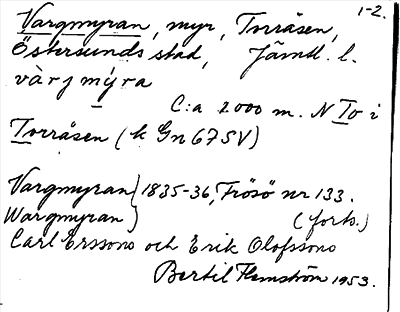 1-2.
Vargmyran, myr, Torråsen,
Östersunds stad, Jämtl. l.
vàrjmýra
C:a 2000 m. N To i
Torråsen (k Gn 67 SV)
Vargmyran } 1835-36, Frösö nr 133.
Wargmyran } (forts.)
Carl Erssons och Erik Olofssons
Bertil Flemström 1953.